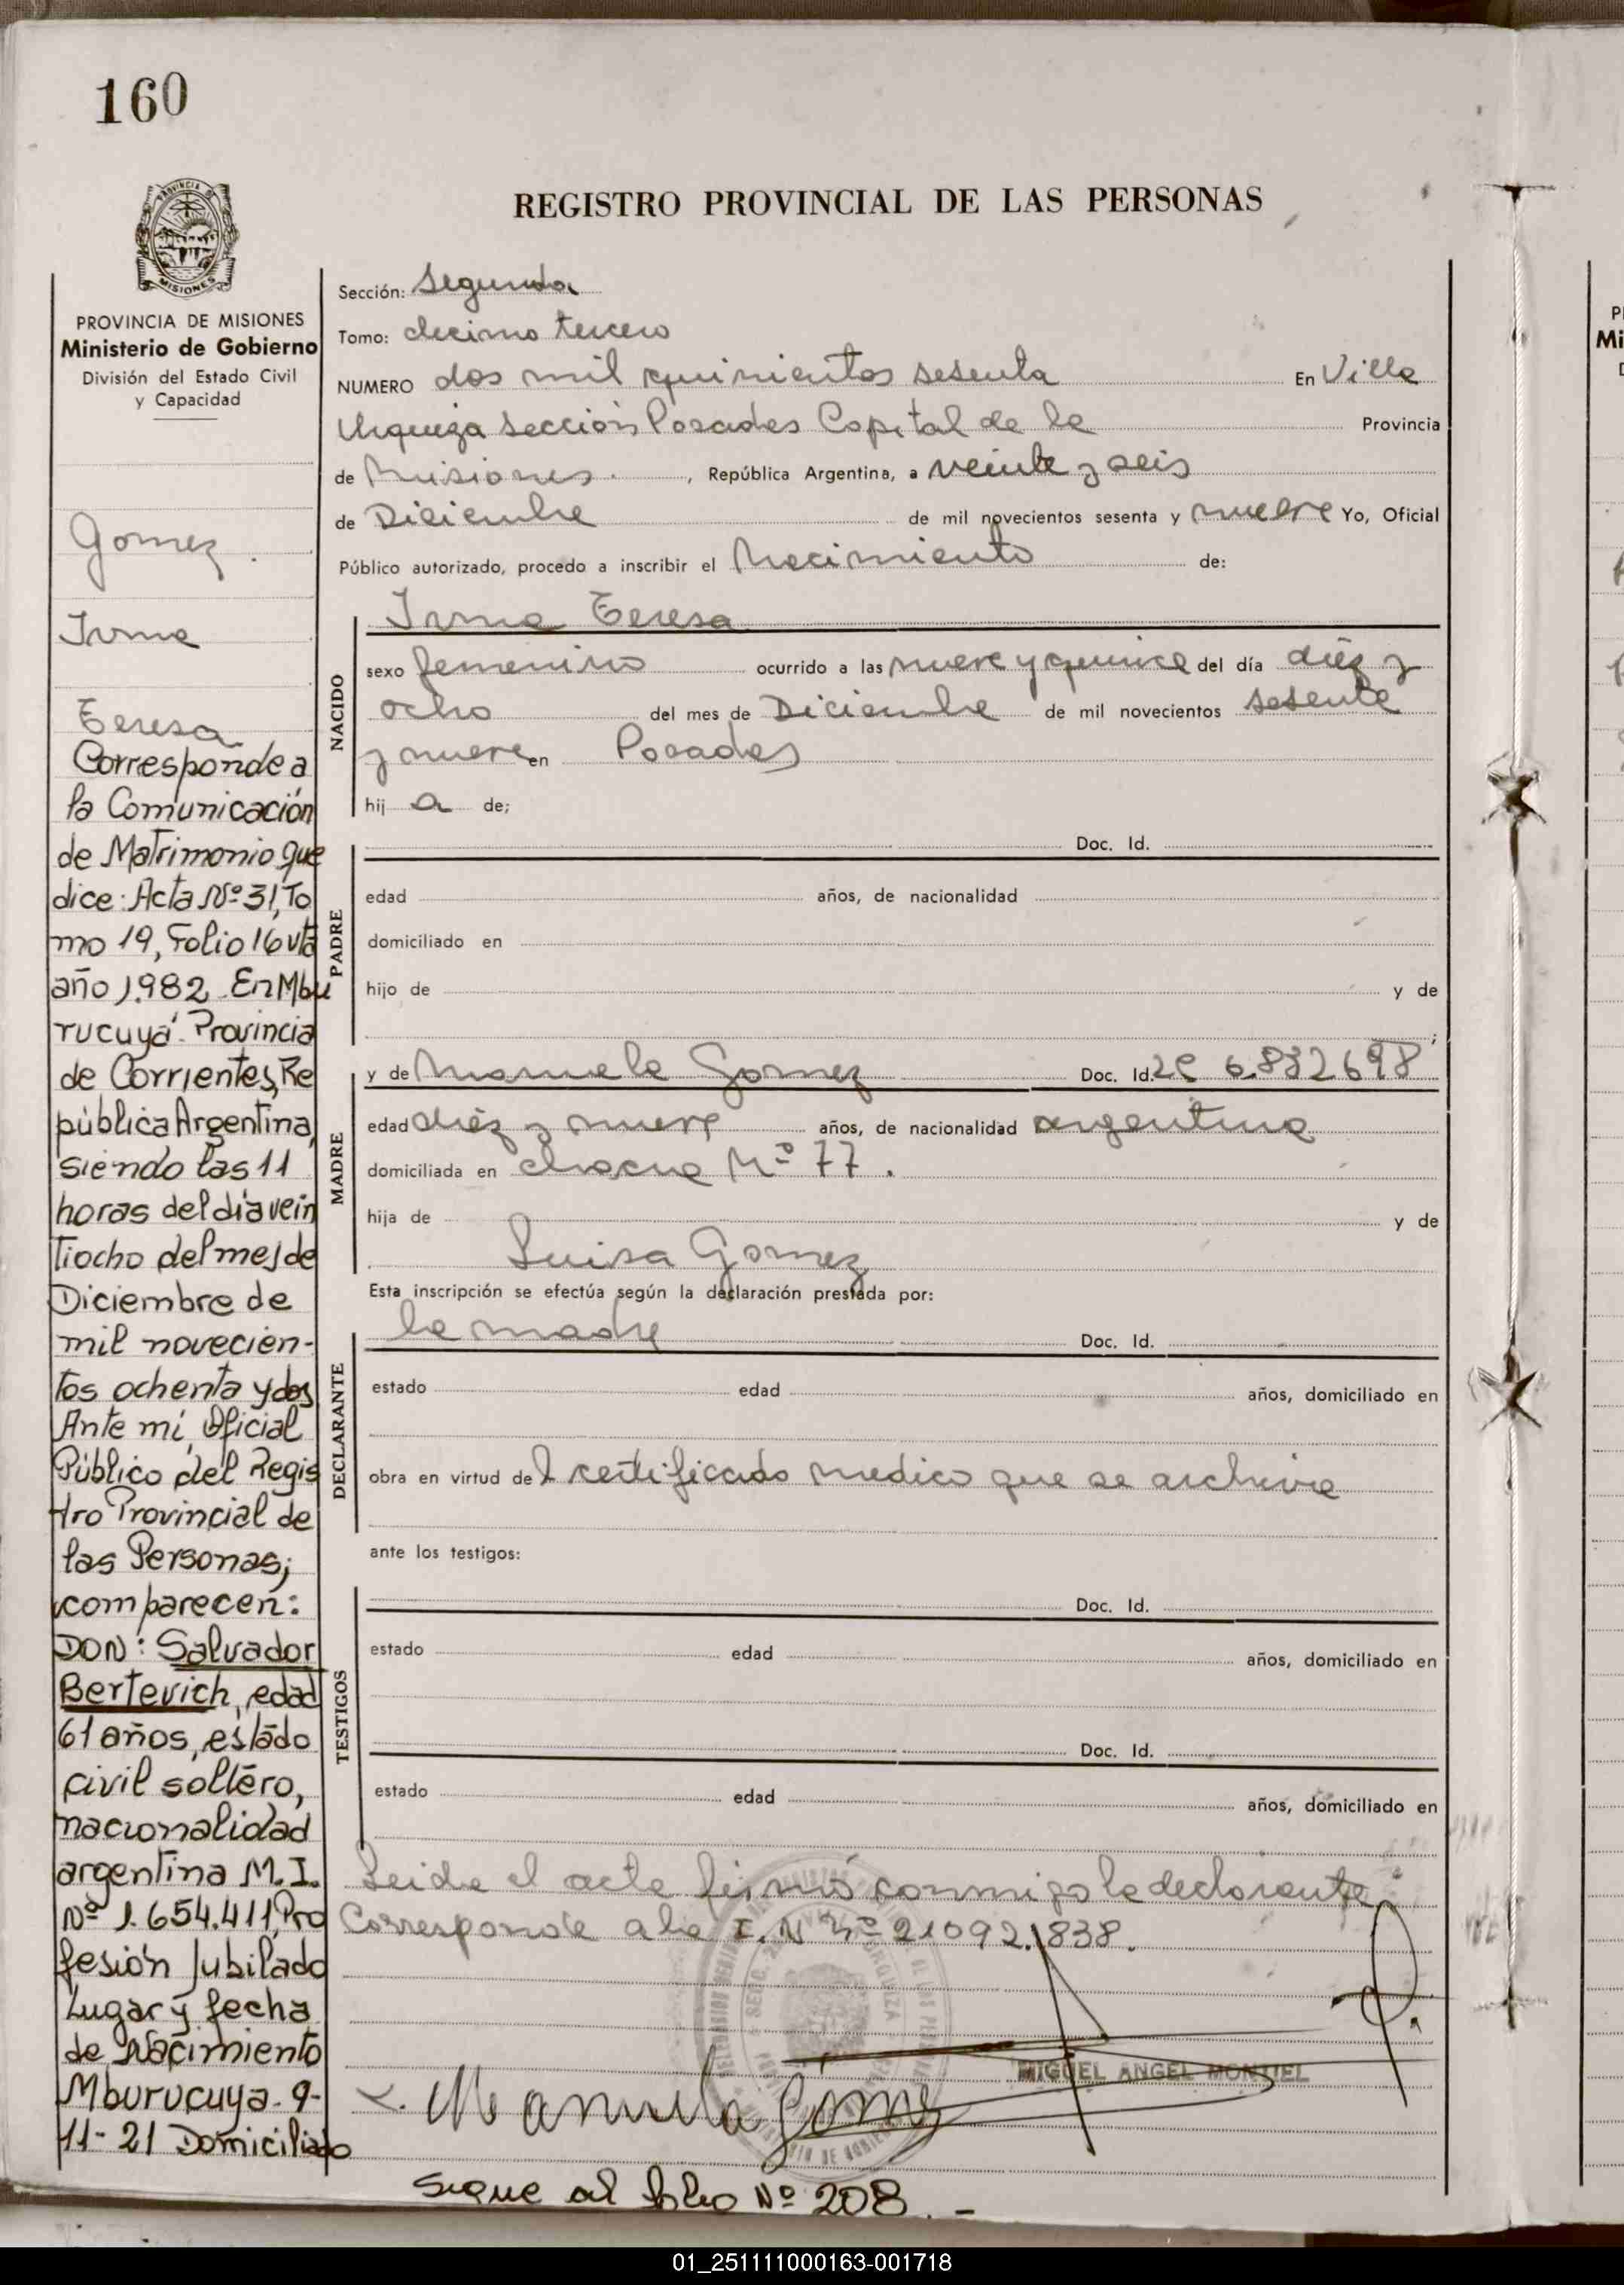 160
REGISTRO PROVINCIAL DE LAS PERSONAS
PROVINCIA DE MISIONES
Ministerio de Gobierno
División del Estado Civil
y Capacidad
Gomez
Irma
Teresa
Corresponde a
la Comunicación
de Matrimonio que
dice: Acta Nº 31, To
mo 19, Folio 16 vta
año 1.982. En Mbu
rucuyá. Provincia
de Corrientes, Re
pública Argentina,
siendo las 11
horas del día vein
tiocho del mes de
Diciembre de
mil novecien-
tos ochenta y dos
Ante mí, Oficial
Público del Regis
tro Provincial de
las Personas;
comparecen:
DON: Salvador
Bertevich, edad
61 años, estado
civil soltero,
nacionalidad
argentina M.I.
Nº 1.654.411, Pro
fesión Jubilado
Lugar y fecha
de Nacimiento
Mburucuya. 9-
11-21 Domiciliado
Sección: Segunda
Tomo: decimo tercero
NUMERO dos mil quinientos sesenta En Villa
Urquiza sección Posadas Capital de la Provincia
de Misiones, República Argentina, a veinte y seis
de Diciembre de mil novecientos sesenta y nueve Yo, Oficial
Público autorizado, procedo a inscribir el Nacimiento de:
Irma Teresa
NACIDO
sexo femenino ocurrido a las nueve y quince del día diéz y
ocho del mes de Diciembre de mil novecientos sesenta
y nueve en Posadas
hij a de;
Doc. Id.
PADRE
edad años, de nacionalidad
domiciliado en
hijo de y de
;
y de Manuela Gomez Doc. Id. LC 6.832698
MADRE
edad diéz y nueve años, de nacionalidad argentina
domiciliada en chacra Nº 77.
hija de y de
Luisa Gomez
Esta inscripción se efectúa según la declaración prestada por:
la madre Doc. Id.
DECLARANTE
estado edad años, domiciliado en
obra en virtud del certificado medico que se archiva
ante los testigos:
Doc. Id.
TESTIGOS
estado edad años, domiciliado en
Doc. Id.
estado edad años, domiciliado en
Leida el acta firmó conmigo la declarante
Corresponde a la I.N Nº 21092.838.
MIGUEL ANGEL MONTIEL
Manuela Gomez
Sigue al folio Nº 208.-
01_251111000163-001718